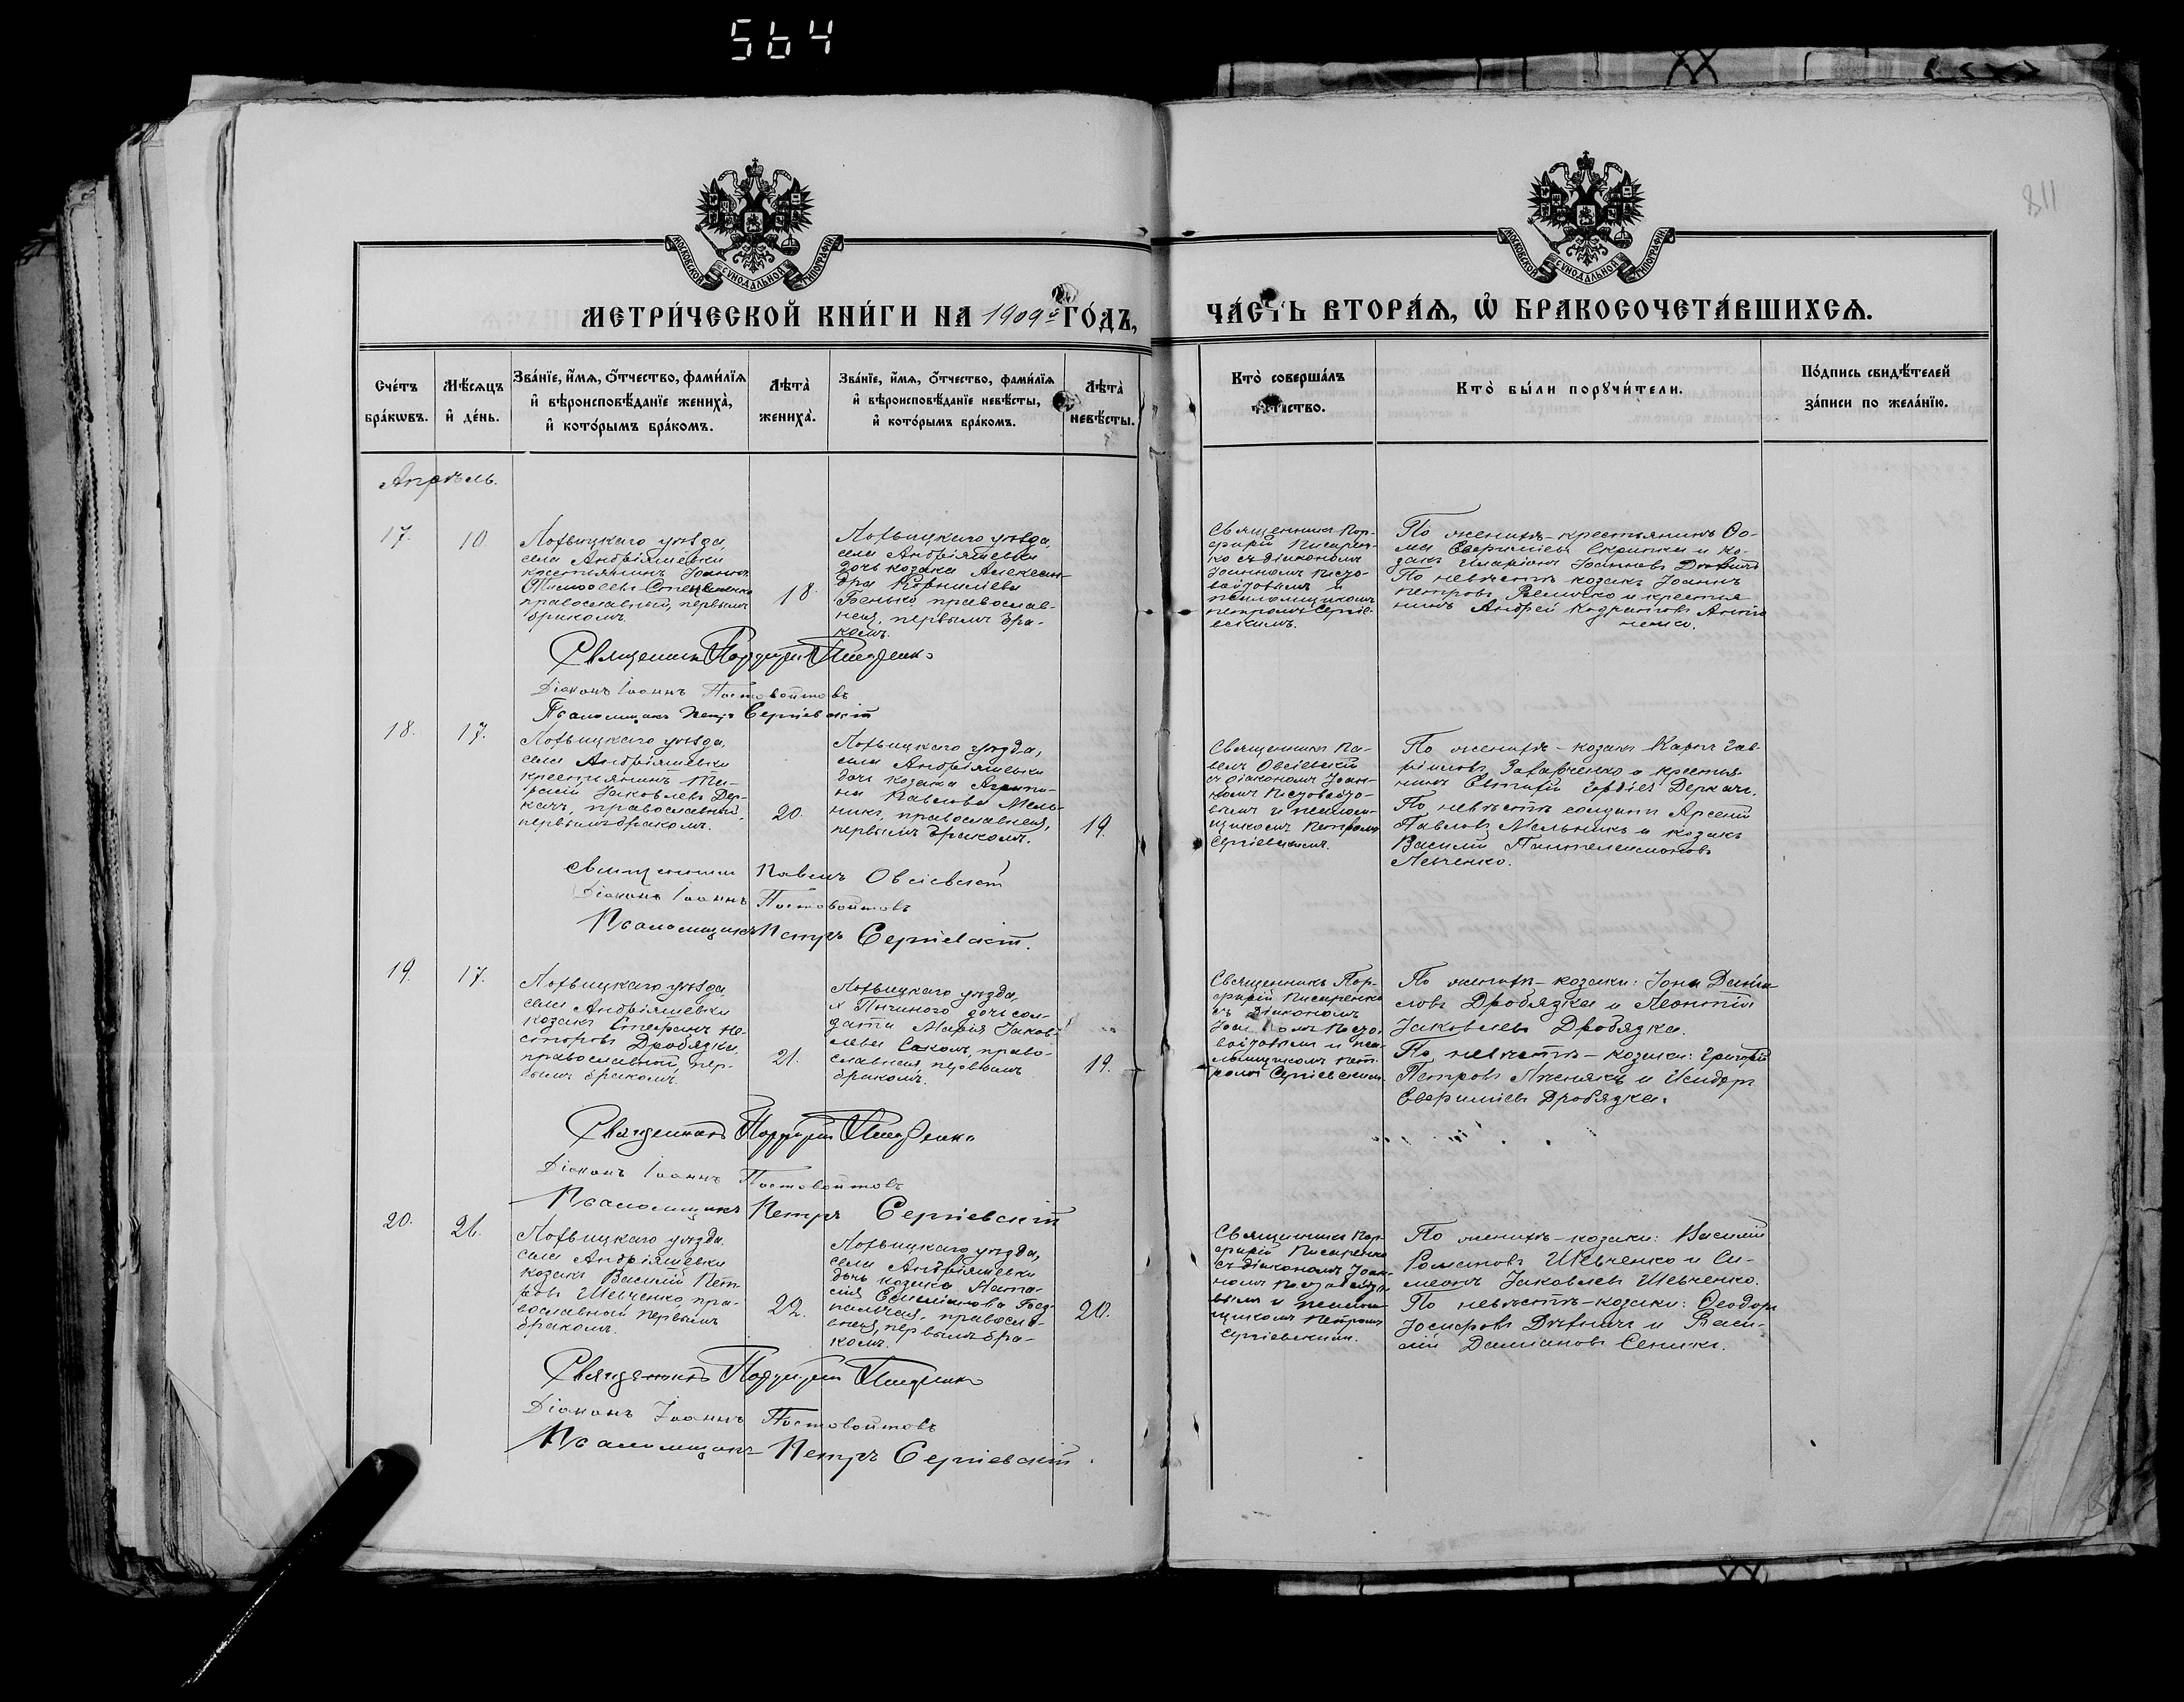 564
118
МОСКОВСКОЙ СѴНОДАЛЬНОЙ ТИПОГРАФІИ
МОСКОВСКОЙ СѴНОДАЛЬНОЙ ТИПОГРАФІИ
МЕТРИ́ЧЕСКОЙ КНИ́ГИ НА 1909й ГО́ДЪ,
ЧА́СТЬ ВТОРА́Ѧ, Ѡ҆ БРАКОСОЧЕТА́ВШИХСѦ.
Сче́тъ
бра́кѡвъ.
Мѣ́сяцъ
и҆ де́нь.
Зва́нїе, и҆́мѧ, ѻ҆́тчество, фами́лїѧ
и҆ вѣроисповѣ́данїе жениха̀,
и҆ кото́рымъ бра́комъ.
Лѣта̀
жениха̀.
Зва́нїе, и҆́мѧ, ѻ҆́тчество, фами́лїѧ
и҆ вѣроисповѣ́данїе невѣ́сты,
и҆ кото́рымъ бра́комъ.
Лѣта̀
невѣ́сты.
Кто̀ соверша́лъ
таинство.
Кто̀ бы́ли порꙋчи́тели.
По́дпись свидѣ́телей
за́писи по жела́нїю.
Апрѣль.
17.
10.
Лохвицкаго уѣзда,
села Андріяшевки
крестьянинъ Іоаннъ
православный, первымъ
бракомъ.
18.
Лохвицкаго уѣзда,
села Андріяшевки
дочь козака Алексан-
дра Корниліева
Бенько, православ-
ная, первымъ бра-
комъ.
Священникъ Пор-
фирій Писарен-
ко съ діакономъ
Іоанномъ Посто-
войтовымъ и
псаломщикомъ
Петромъ Сергіев-
скимъ.
По женихѣ - крестьянинъ Ѳо-
ма Евфиміевъ Скрипка и ко-
закъ Иларіонъ Іоанновъ
По невѣстѣ козакъ Іоаннъ
Петровъ Величко и крестья
нинъ Андрей Кодратовъ Анто
ненко.
Священникъ Порфирій Писаренко
Діаконъ Іоаннъ Постовойтовъ
Псаломщикъ Петръ Сергіевскій
18.
17.
Лохвицкаго уѣзда,
села Андріяшевки
крестьянинъ Та-
расій Іаковлевъ Дер-
качъ, православный,
первымъ бракомъ.
20.
Лохвицкаго уѣзда,
села Андріяшевки
дочь козака Агрипи-
на Павлова Мель-
никъ, православная,
первымъ бракомъ.
19.
Священникъ Па-
велъ Овсіевскій
съ діакономъ Іоан-
номъ Постовойто-
вымъ и псалом-
щикомъ Петромъ
Сергіевскимъ.
По женихѣ - козакъ Карпъ Гав-
ріиловъ Захарченко и крестья-
нинъ Деркачъ.
По невѣстѣ солдатъ Арсеній
Павловъ Мельникъ и козакъ
Василій Пантелеимоновъ
Левченко.
Священникъ Павелъ Овсіевскій
Діаконъ Іоаннъ Постовойтовъ
Псаломщикъ Петръ Сергіевскій.
19.
17.
Лохвицкаго уѣзда,
села Андріяшевки
козакъ Стефанъ Не-
сторовъ Дробязка,
православный, пер-
вымъ бракомъ.
21.
Лохвицкаго уѣзда,
дочь сол-
дата Марія Іаков-
лева Сакомъ, право-
славная, первымъ
бракомъ.
19.
Священникъ Пор-
фирій Писаренко
съ діакономъ
Іоанномъ Посто-
войтовымъ и пса-
ломщикомъ Пет-
ромъ Сергіевскимъ.
По женихѣ - козаки: Іона Даніи
ловъ Дробязка и Леонтій
Іаковлевъ Дробязка.
По невѣстѣ - козаки: Григорій
Петровъ и Исидоръ
Евфиміевъ Дробязка.
Священникъ Порфирій Писаренко
Діаконъ Іоаннъ Постовойтовъ
Псаломщикъ Петръ Сергіевскій
20.
26.
Лохвицкаго уѣзда
села Андріяшевки
козакъ Василій Пет-
ровъ Шевченко, пра-
вославный первымъ
бракомъ.
22.
Лохвицкаго уѣзда,
села Андріяшевки
дочь козака Ната-
лія
православ-
ная, первымъ бра-
комъ.
20.
Священникъ Пор-
фирій Писаренко
съ діакономъ Іоан-
номъ Постовойто-
вымъ и псалом-
щикомъ Петромъ
Сергіевскимъ.
По женихѣ - козаки: Василій
Романовъ Шевченко и Си-
меонъ Іаковлевъ Шевченко.
По невѣстѣ - козаки: Ѳеодоръ
Іосифовъ и Васи-
лій Даміановъ Сеникъ.
Священникъ Порфирій Писаренко
Діаконъ Іоаннъ Постовойтовъ
Псаломщикъ Петръ Сергіевскій.